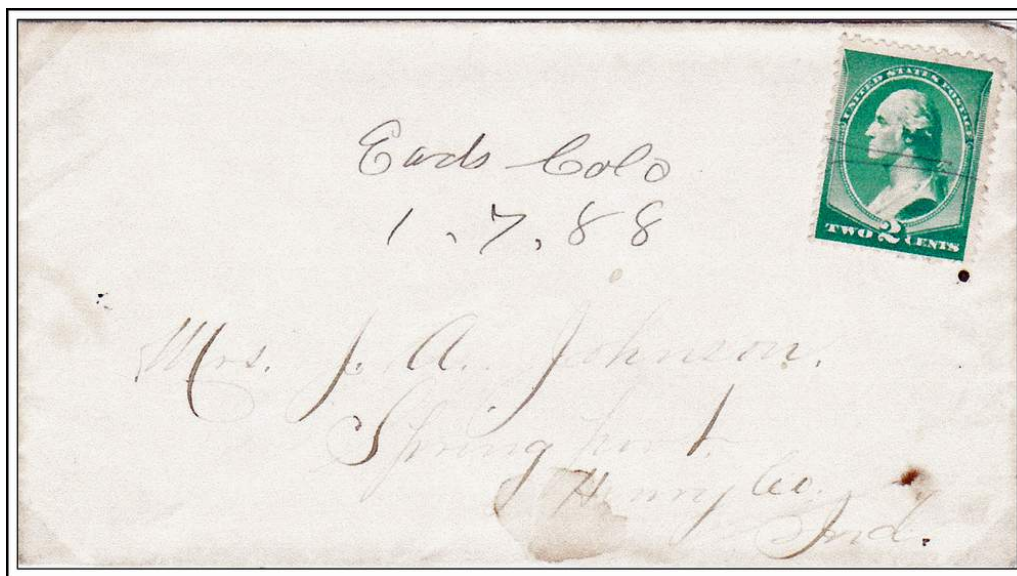 UNITED STATES POSTAGE
TWO 2 CENTS
Eads Colo
1.7.88
Mrs. J. A. Johnson.
Springport.
Henry Co.
Ind.